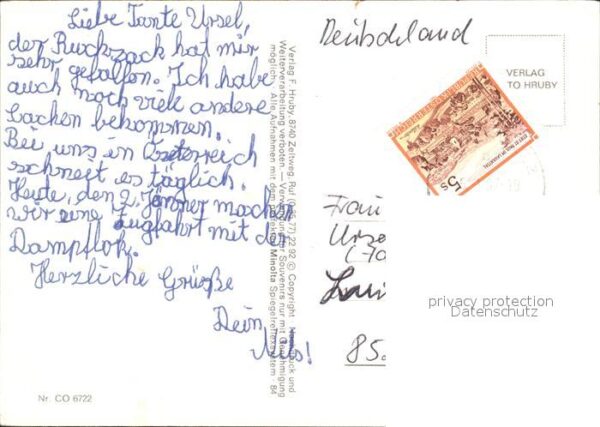 Liebe Tante Ursel,
der Ruckzack hat mir
sehr gefallen. Ich habe
auch noch viele andere
Sachen bekommen.
Bei uns in Österreich
schneit es täglich.
Heute, den 2. Jänner machen
wir eine Zugfahrt mit der
Dampflok.
Herzliche Grüße
Dein
Nils!
Nr. CO 6722
Verlag F. Hruby, 8740 Zeltweg, Ruf (0 35 77) 22 92 © Copyright
Weiterverarbeitung verboten. — Verwendung für Souvenirs nur mit Genehmigung
möglich. Alle Aufnahmen mit dem Minolta Spiegelreflexsystem - 84
Deutschland
VERLAG
TO HRUBY
5 S
Frau
85
privacy protection
Datenschutz